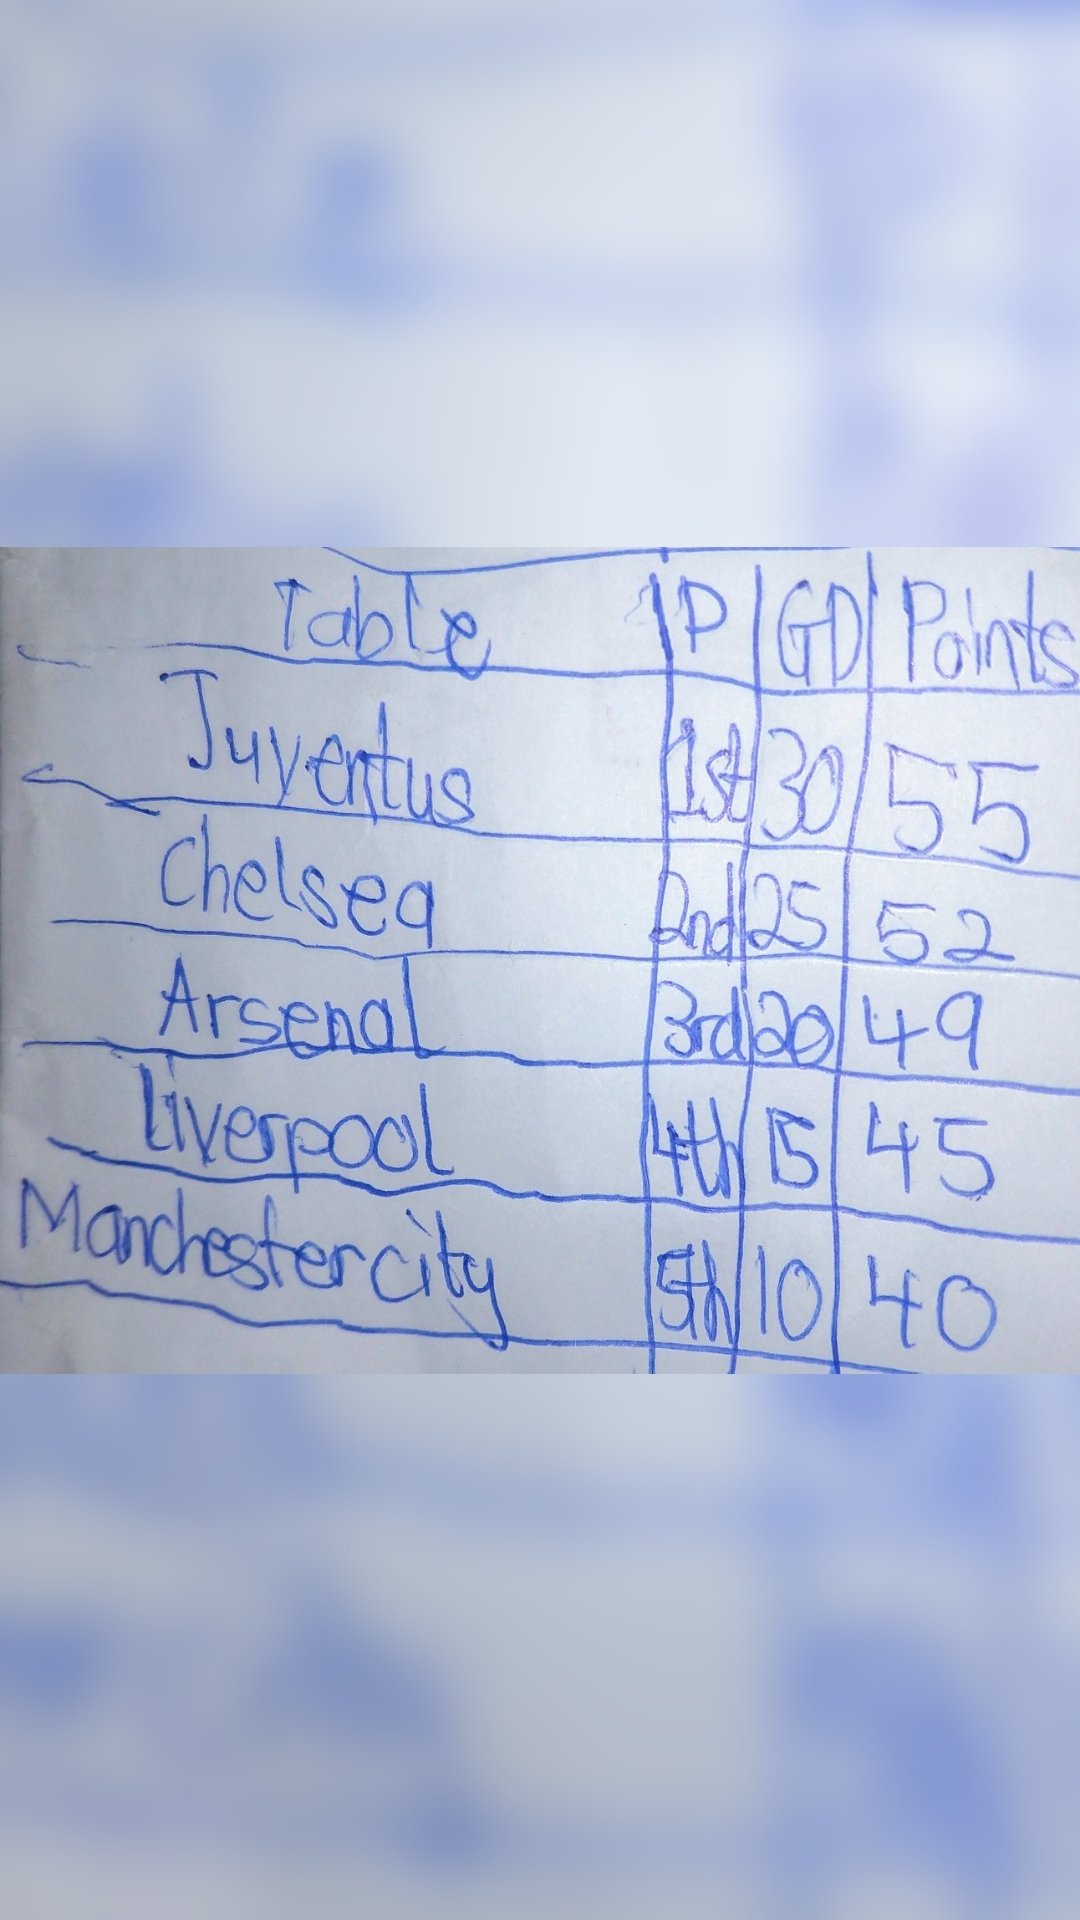 Table P GD Points
Juventus 1st 30 55
Chelsea 2nd 25 52
Arsenal 3rd 20 49
Liverpool 4th 15 45
Manchester city 5th 10 40